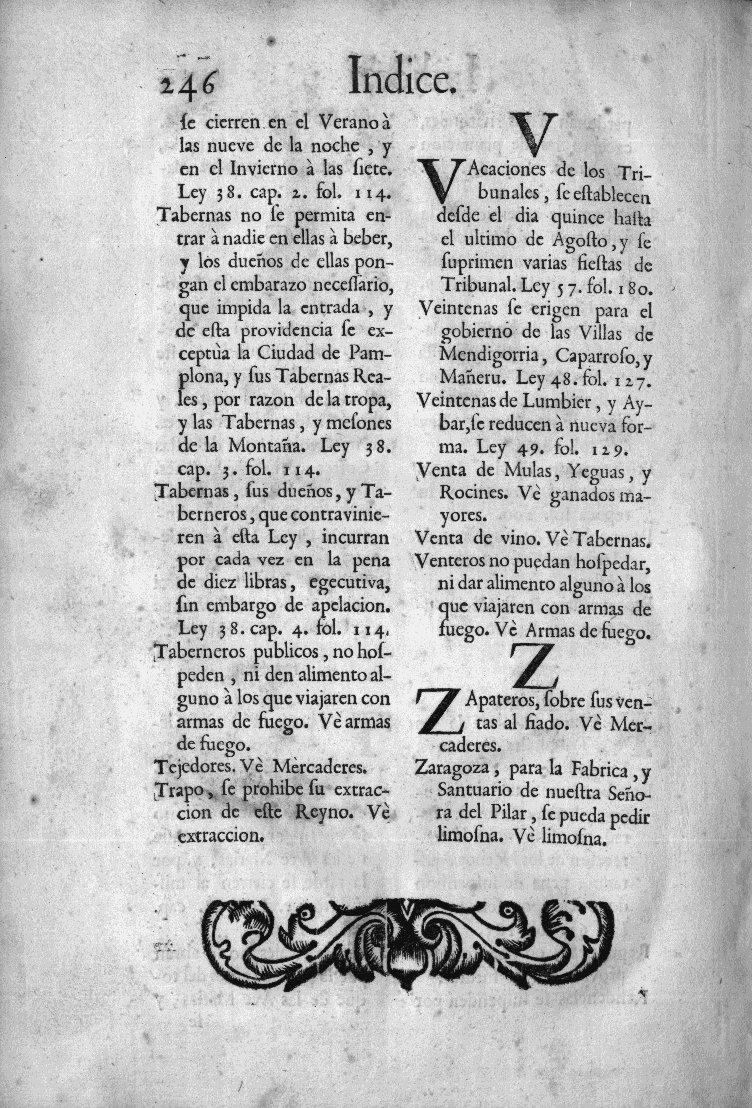 246 Indice.
ſe cierren en el Verano à
las nueve de la noche, y
en el Invierno à las ſiete.
Ley 38. cap. 2. fol. 114.
Tabernas no ſe permita en-
trar à nadie en ellas à beber,
y los dueños de ellas pon-
gan el embarazo neceſſario,
que impida la entrada, y
de eſta providencia ſe ex-
ceptùa la Ciudad de Pam-
plona, y ſus Tabernas Rea-
les, por razon de la tropa,
y las Tabernas, y meſones
de la Montaña. Ley 38.
cap. 3. fol. 114.
Tabernas, ſus dueños, y Ta-
berneros, que contravinie-
ren à eſta Ley, incurran
por cada vez en la pena
de diez libras, egecutiva,
ſin embargo de apelacion.
Ley 38. cap. 4. fol. 114.
Taberneros publicos, no hoſ-
peden, ni den alimento al-
guno à los que viajaren con
armas de fuego. Vè armas
de fuego.
Tejedores. Vè Mercaderes.
Trapo, ſe prohibe ſu extrac-
cion de eſte Reyno. Vè
extraccion.
V
VAcaciones de los Tri-
bunales, ſe eſtablecen
deſde el dia quince haſta
el ultimo de Agoſto, y ſe
ſuprimen varias fieſtas de
Tribunal. Ley 57. fol. 180.
Veintenas ſe erigen para el
gobierno de las Villas de
Mendigorria, Caparroſo, y
Mañeru. Ley 48. fol. 127.
Veintenas de Lumbier, y Ay-
bar, ſe reducen à nueva for-
ma. Ley 49. fol. 129.
Venta de Mulas, Yeguas, y
Rocines. Vè ganados ma-
yores.
Venta de vino. Vè Tabernas.
Venteros no puedan hoſpedar,
ni dar alimento alguno à los
que viajaren con armas de
fuego. Vè Armas de fuego.
Z
ZApateros, ſobre ſus ven-
tas al fiado. Vè Mer-
caderes.
Zaragoza, para la Fabrica, y
Santuario de nueſtra Seño-
ra del Pilar, ſe pueda pedir
limoſna. Vè limoſna.